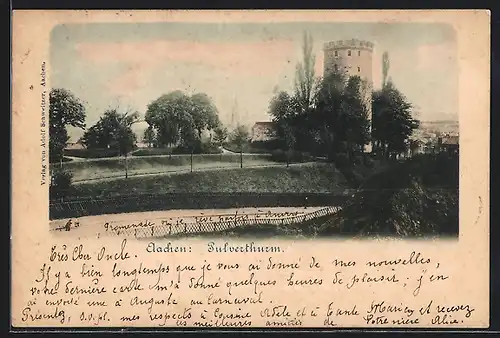 Verlag von Adolf Schweitzer, Aachen.
Promenade où je rêve parfois à
Aachen: Pulverthurm.
Très cher Oncle,
Il y a bien longtemps que je vous ai donné de mes nouvelles,
votre dernière carte m'a donné quelques heures de plaisir, j'en
ai envoyé une à Auguste au Carnaval.
Présentez, s.v.pl. mes respects à Cousine Adèle et à Tante Marie et recevez
les meilleures amitiés de Votre nièce Alice.